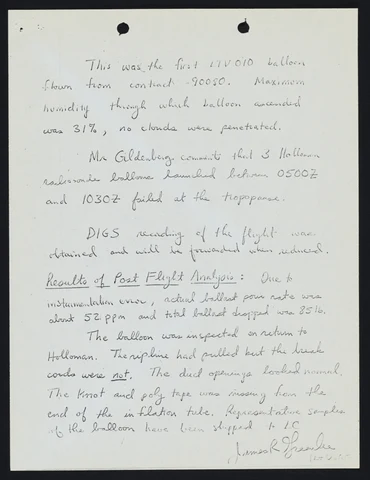 This was the first 27V010 balloon
flown from contract 90050. Maximum
humidity through which balloon ascended
was 31%, no clouds were penetrated.
Mr. Gildenberg comments that 3 Holloman
radiosonde balloons launched between 0500Z
and 1030Z failed at the tropopause.
DIGS recording of the flight was
obtained and will be forwarded when reduced.
Results of Post Flight Analysis: Due to
instrumentation error, actual ballast pour rate was
about 52 ppm and total ballast dropped was
The balloon was inspected on return to
Holloman. The ripline had pulled but the break
cords were not. The duct openings looked normal.
The knot and poly tape was missing from the
end of the inflation tube. Representative samples
of the balloon have been shipped to
James R